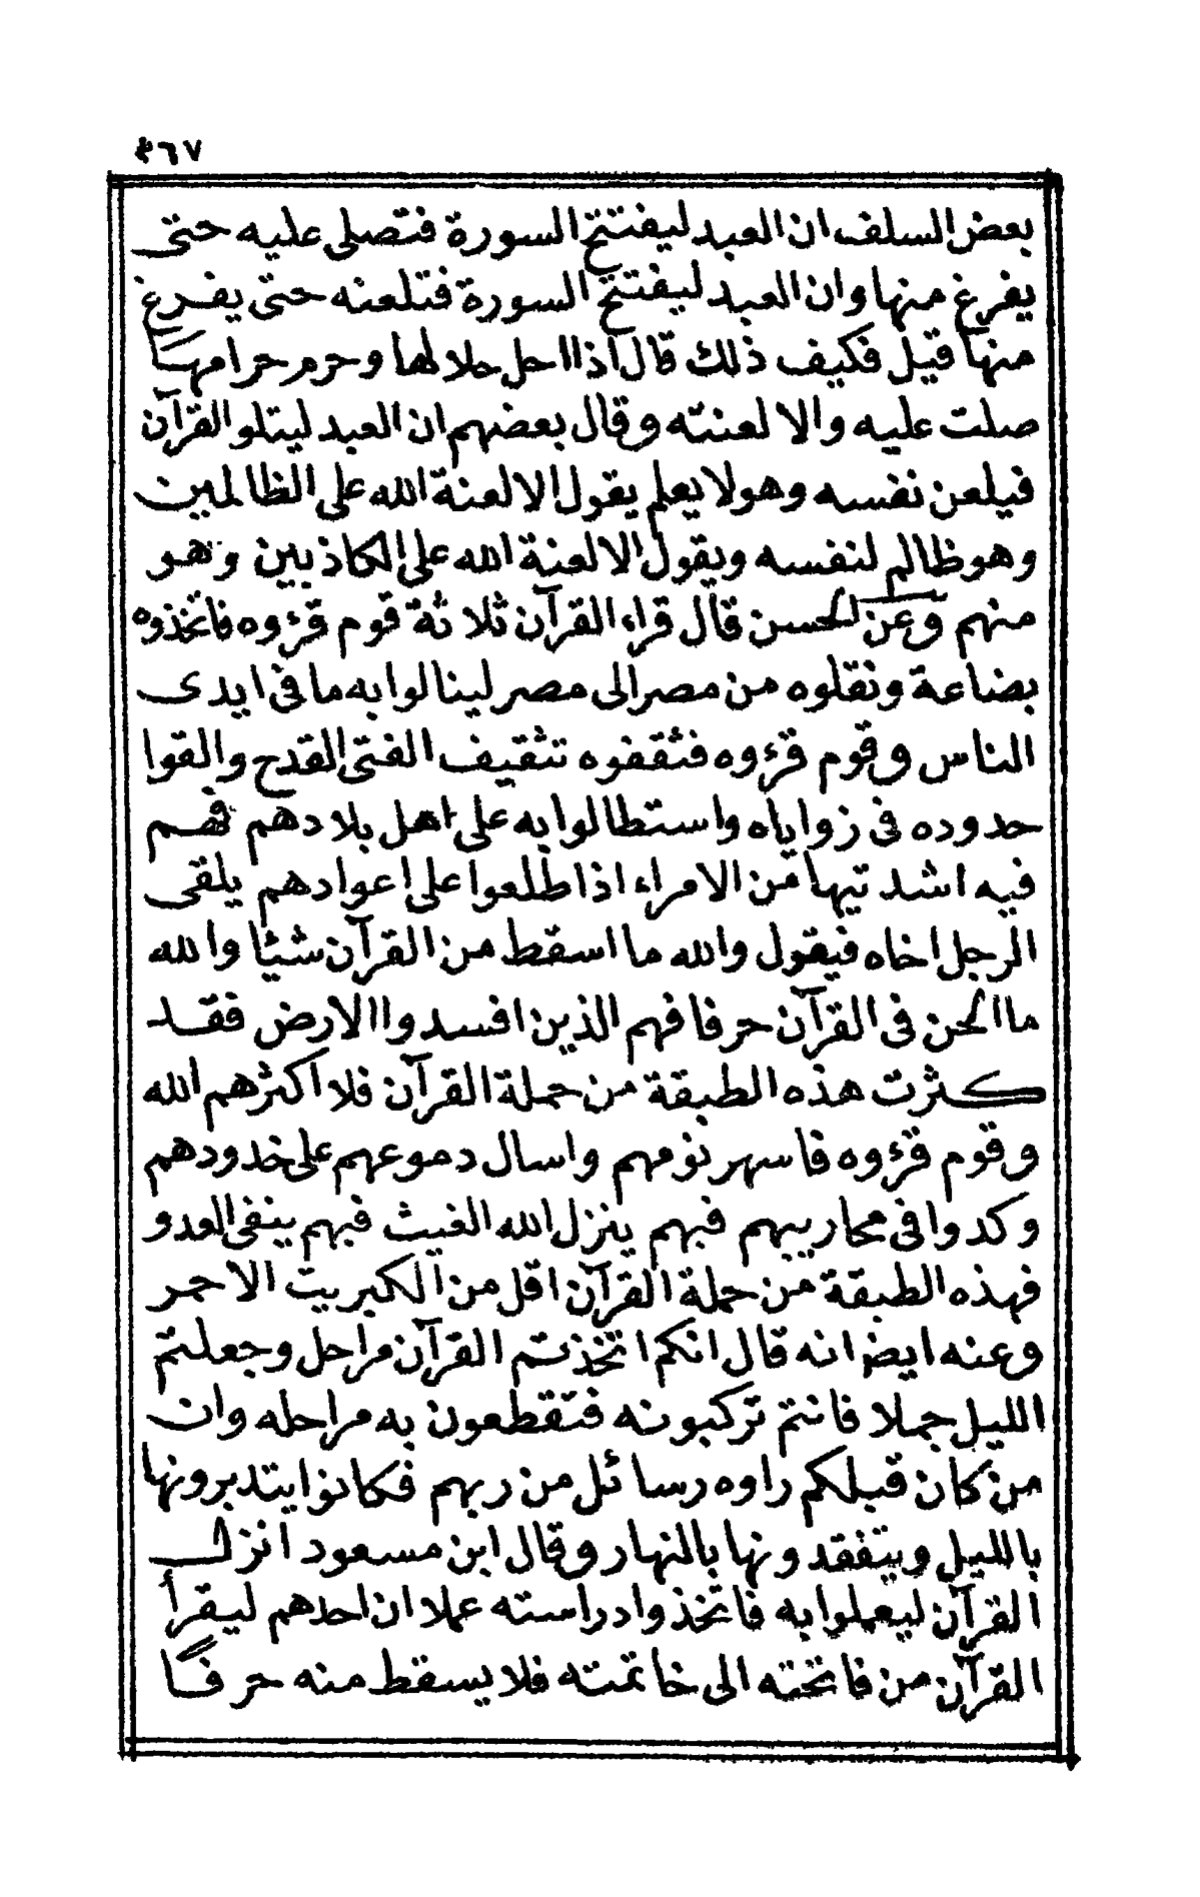 ٤٦٧
بعض السلف ان العبد ليفتتح السورة فتصلى عليه حتى
يفرغ منها وان العبد ليفتتح السورة فتلعنه حتى يفرغ
منها قيل فكيف ذلك قال اذا احل حلالها وحرم حرامها
صلت عليه والا لعنته وقال بعضهم ان العبد ليتلو القرآن
فيلعن نفسه وهو لا يعلم يقول الا لعنة الله على الظالمين
وهو ظالم لنفسه ويقول الا لعنة الله على الكاذبين وهو
منهم وعن الحسن قال قراء القرآن ثلاثة قوم قرءوه فاتخذوه
بضاعة ونقلوه من مصر الى مصر لينالوا به ما فى ايدى
الناس وقوم قرءوه فثقفوه تثقيف الفتى القدح والقوا
حدوده فى زواياه واستطالوا به على اهل بلادهم فهم
فيه اشد تيها من الامراء اذا طلعوا على اعوادهم يلقى
الرجل اخاه فيقول والله ما اسقط من القرآن شئا والله
ما الحن فى القرآن حرفا فهم الذين افسدوا الارض فقد
كثرت هذه الطبقة من حملة القرآن فلا اكثرهم الله
وقوم قرءوه فاسهر نومهم واسال دموعهم على خدودهم
وكدوا فى محاريبهم فبهم ينزل الله الغيث فبهم ينفى العدو
فهذه الطبقة من حملة القرآن اقل من الكبريت الاحمر
وعنه ايضا انه قال انكم اتخذتم القرآن مراحل وجعلتم
الليل جملا فانتم تركبونه فتقطعون به مراحله وان
من كان قبلكم راوه رسائل من ربهم فكانوا يتدبرونها
بالليل ويتفقدونها بالنهار وقال ابن مسعود انزل
القرآن ليعملوا به فاتخذوا دراسته عملا ان احدهم ليقرأ
القرآن من فاتحته الى خاتمته فلا يسقط منه حرفا